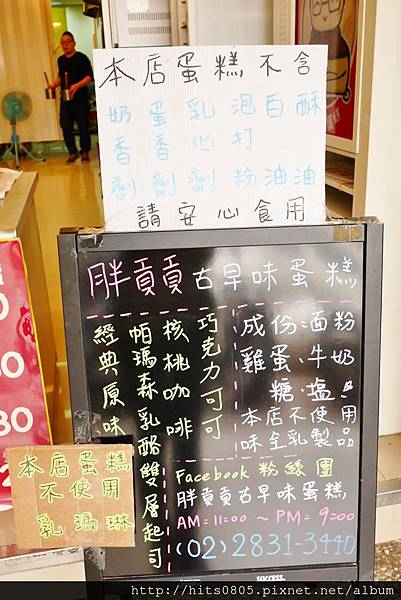 本店蛋糕不含
奶香劑
蛋香劑
乳化劑
泡打粉
白油
酥油
請安心食用
胖貢貢古早味蛋糕
巧克力可可
核桃咖啡
帕瑪森乳酪雙層起司
經典原味
成份:面粉
雞蛋、牛奶
糖、塩。
本店不使用
味全乳製品
Facebook 粉絲團
胖貢貢古早味蛋糕
AM=11:00 ~ PM=9:00
(02)2831-3440
本店蛋糕
不使用
乳瑪琳
success
http://hits0805.pixnet.net/album